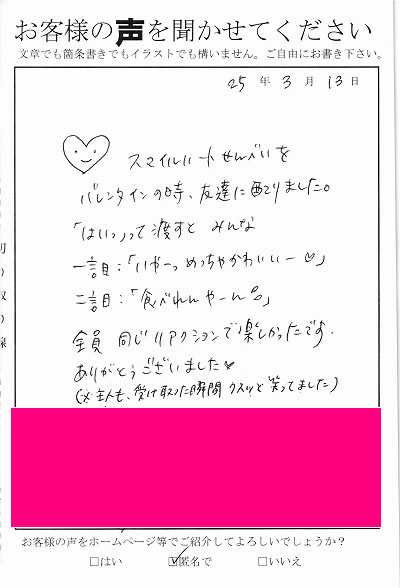 お客様の声を聞かせてください
文章でも箇条書きでもイラストでも構いません。ご自由にお書き下さい。
25 年 3 月 13 日
スマイルハートせんべいを
バレンタインの時、友達に配りました。
「はいっ」って渡すと みんな
一言目:「いやーっ めっちゃかわいいー♡」
二言目:「食べれんやーん」
全員 同じリアクションで楽しかったです.
ありがとうございました♥
(※主人も、受け取った瞬間 クスッと笑ってました)
切り取り線
お客様の声をホームページ等でご紹介してよろしいでしょうか?
□はい ☑匿名で □いいえ